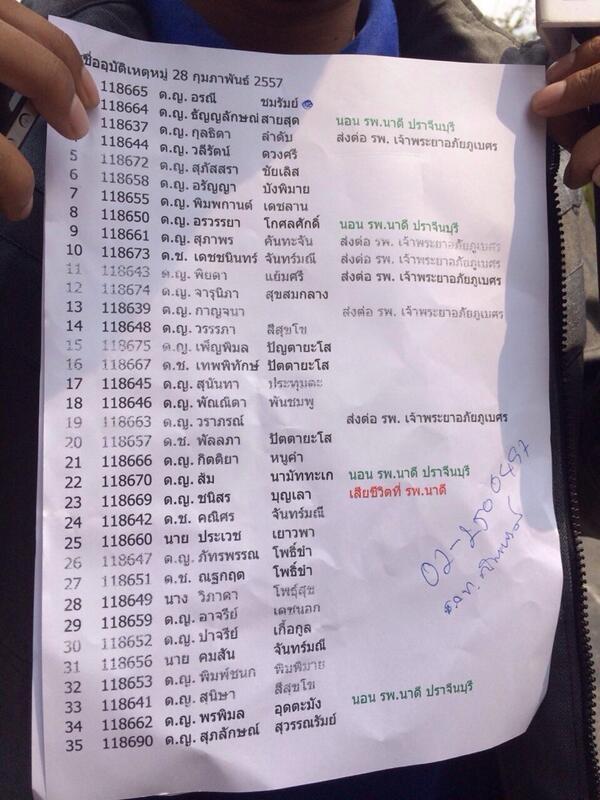 ชื่ออุบัติเหตุหมู่ 28 กุมภาพันธ์ 2557
118665 ด.ญ. อรณี ชมรัมย์
118664 ด.ญ. ธัญญลักษณ์ สายสุด นอน รพ.นาดี ปราจีนบุรี
118637 ด.ญ. กุลธิดา ลำดับ ส่งต่อ รพ. เจ้าพระยาอภัยภูเบศร
118644 ด.ญ. วลีรัตน์ ดวงศรี
5 118672 ด.ญ. สุภัสสรา ชัยเลิส
6 118658 ด.ญ. อรัญญา บังพิมาย
7 118655 ด.ญ. พิมพกานต์ เดชลาน
8 118650 ด.ญ. อรวรรยา โกศลศักดิ์ นอน รพ.นาดี ปราจีนบุรี
9 118661 ด.ญ. สุภาพร คันทะจัน ส่งต่อ รพ. เจ้าพระยาอภัยภูเบศร
10 118673 ด.ช. เดชชนินทร์ จันทร์มณี ส่งต่อ รพ. เจ้าพระยาอภัยภูเบศร
11 118643 ด.ญ. พิยดา แย้มศรี ส่งต่อ รพ. เจ้าพระยาอภัยภูเบศร
12 118674 ด.ญ. จารุนิภา สุขสมกลาง
13 118639 ด.ญ. กาญจนา ส่งต่อ รพ. เจ้าพระยาอภัยภูเบศร
14 118648 ด.ญ. วรรรภา สีสุขโข
15 118675 ด.ญ. เพ็ญพิมล ปัญตายะโส
16 118667 ด.ช. เทพพิทักษ์ ปัตตายะโส
17 118645 ด.ญ. สุนันทา ประทุมตะ
18 118646 ด.ญ. พัณณิตา พันชมพู
19 118663 ด.ญ. วราภรณ์ ส่งต่อ รพ. เจ้าพระยาอภัยภูเบศร
20 118657 ด.ช. พัลลภา ปัตตายะโส
21 118666 ด.ญ. กิตติยา หนูคำ
22 118670 ด.ญ. ส้ม นามัททะเก นอน รพ.นาดี ปราจีนบุรี
23 118669 ด.ญ. ชนิสร บุญเลา เสียชีวิตที่ รพ.นาดี
24 118642 ด.ช. คณิศร จันทร์มณี
25 118660 นาย ประเวช เยาวพา
26 118647 ด.ญ. ภัทรพรรณ โพธิ์ขำ
27 118651 ด.ช. ณฐกฤต โพธิ์ขำ
28 118649 นาง วิภาดา โพธุ์สุข
29 118659 ด.ญ. อาจรีย์ เดชนอก
30 118652 ด.ญ. ปาจรีย์ เกื้อกูล
31 118656 นาย คมสัน จันทร์มณี
32 118653 ด.ญ. พิมพ์ชนก พิมพิมาย
33 118641 ด.ญ. สุนิษา สีสุขโข
34 118662 ด.ญ. พรพิมล อุดตะมัง นอน รพ.นาดี ปราจีนบุรี
35 118690 ด.ญ. สุภลักษณ์ สุวรรณรัมย์
02-2500497